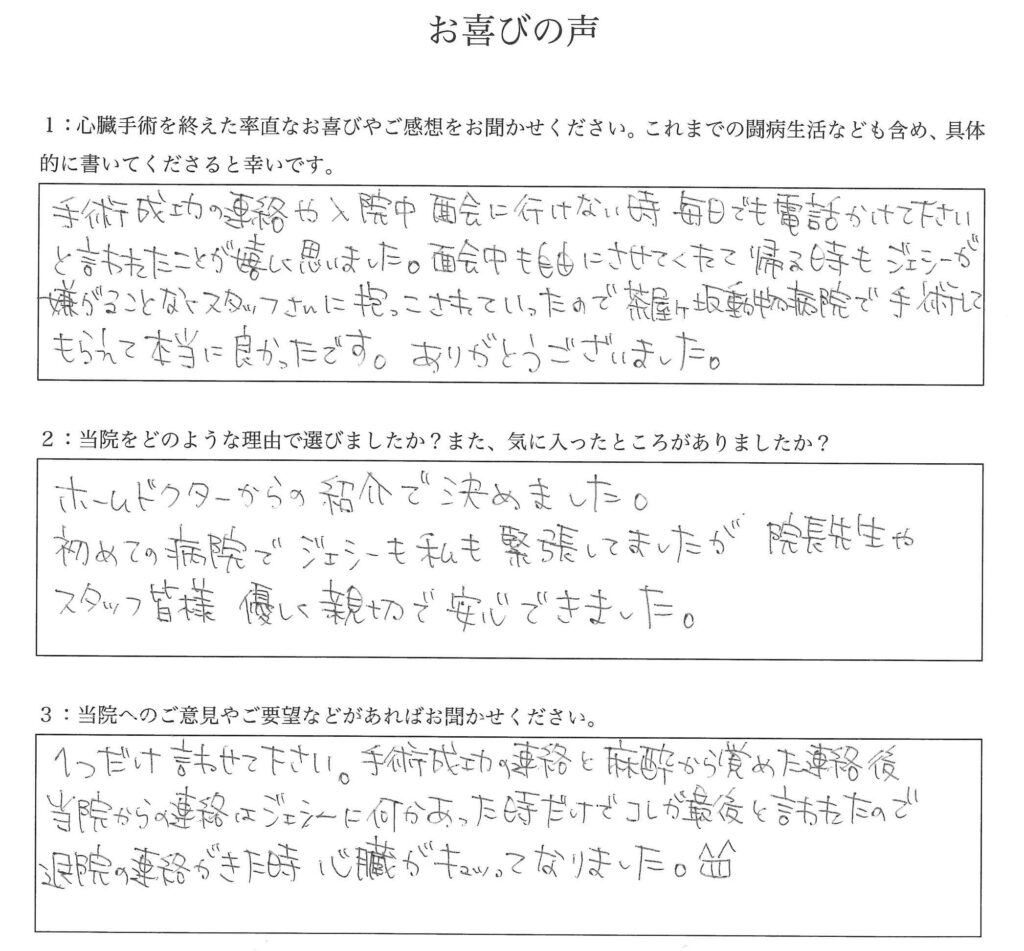 お喜びの声
1：心臓手術を終えた率直なお喜びやご感想をお聞かせください。これまでの闘病生活なども含め、具体
的に書いてくださると幸いです。
手術成功の連絡や入院中 面会に行けない時 毎日でも電話かけて下さい
と言われたことが嬉しく思いました。面会中も自由にさせてくれて 帰る時も ジェシーが
嫌がることなくスタッフさんに抱っこされていったので 茶屋ヶ坂動物病院で 手術して
もらえて本当に良かったです。 ありがとうございました。
2：当院をどのような理由で選びましたか？また、気に入ったところがありましたか？
ホームドクターからの紹介で決めました。
初めての病院で ジェシーも私も 緊張してましたが 院長先生や
スタッフ皆様 優しく親切で安心できました。
3：当院へのご意見やご要望などがあればお聞かせください。
1つだけ言わせて下さい。手術成功の連絡と麻酔から覚めた連絡後
当院からの連絡はジェシーに何かあった時だけでコレが最後と言われたので
退院の連絡がきた時 心臓がキュッってなりました。